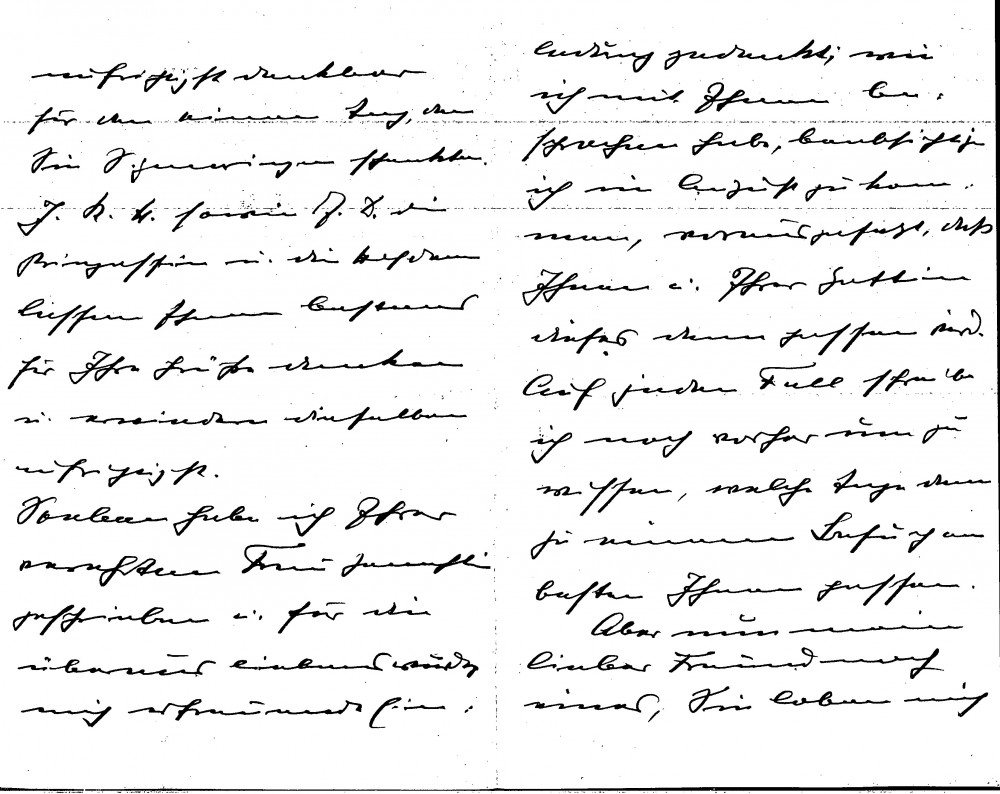 aufrichtigst dankbar
für den einen Tag, den
Sie Schwaningen schenkten.
I. K. H. sowie I. D. die
Prinzessin u. die
lassen Ihnen bestens
für Ihre Grüße danken
u. erwiedern dieselben
aufrichtigst.
Soeben habe ich Ihrer
verehrten Frau Gemahlin
geschrieben u. für die
überaus liebenswürdige
mich erfreuende Ein:
ladung gedankt; wie
ich mit Ihnen be:
sprochen habe, beabsichtige
ich im August zu kom:
men, vorausgesetzt, daß
Ihnen u. Ihrer Gattin
dieses dann passen wird.
Auf jeden Fall schreibe
ich noch vorher um zu
wissen, welche Tage dann
zu einem Besuch am
besten Ihnen passen.
Aber nun mein
lieber Freund noch
eines, Sie loben mich